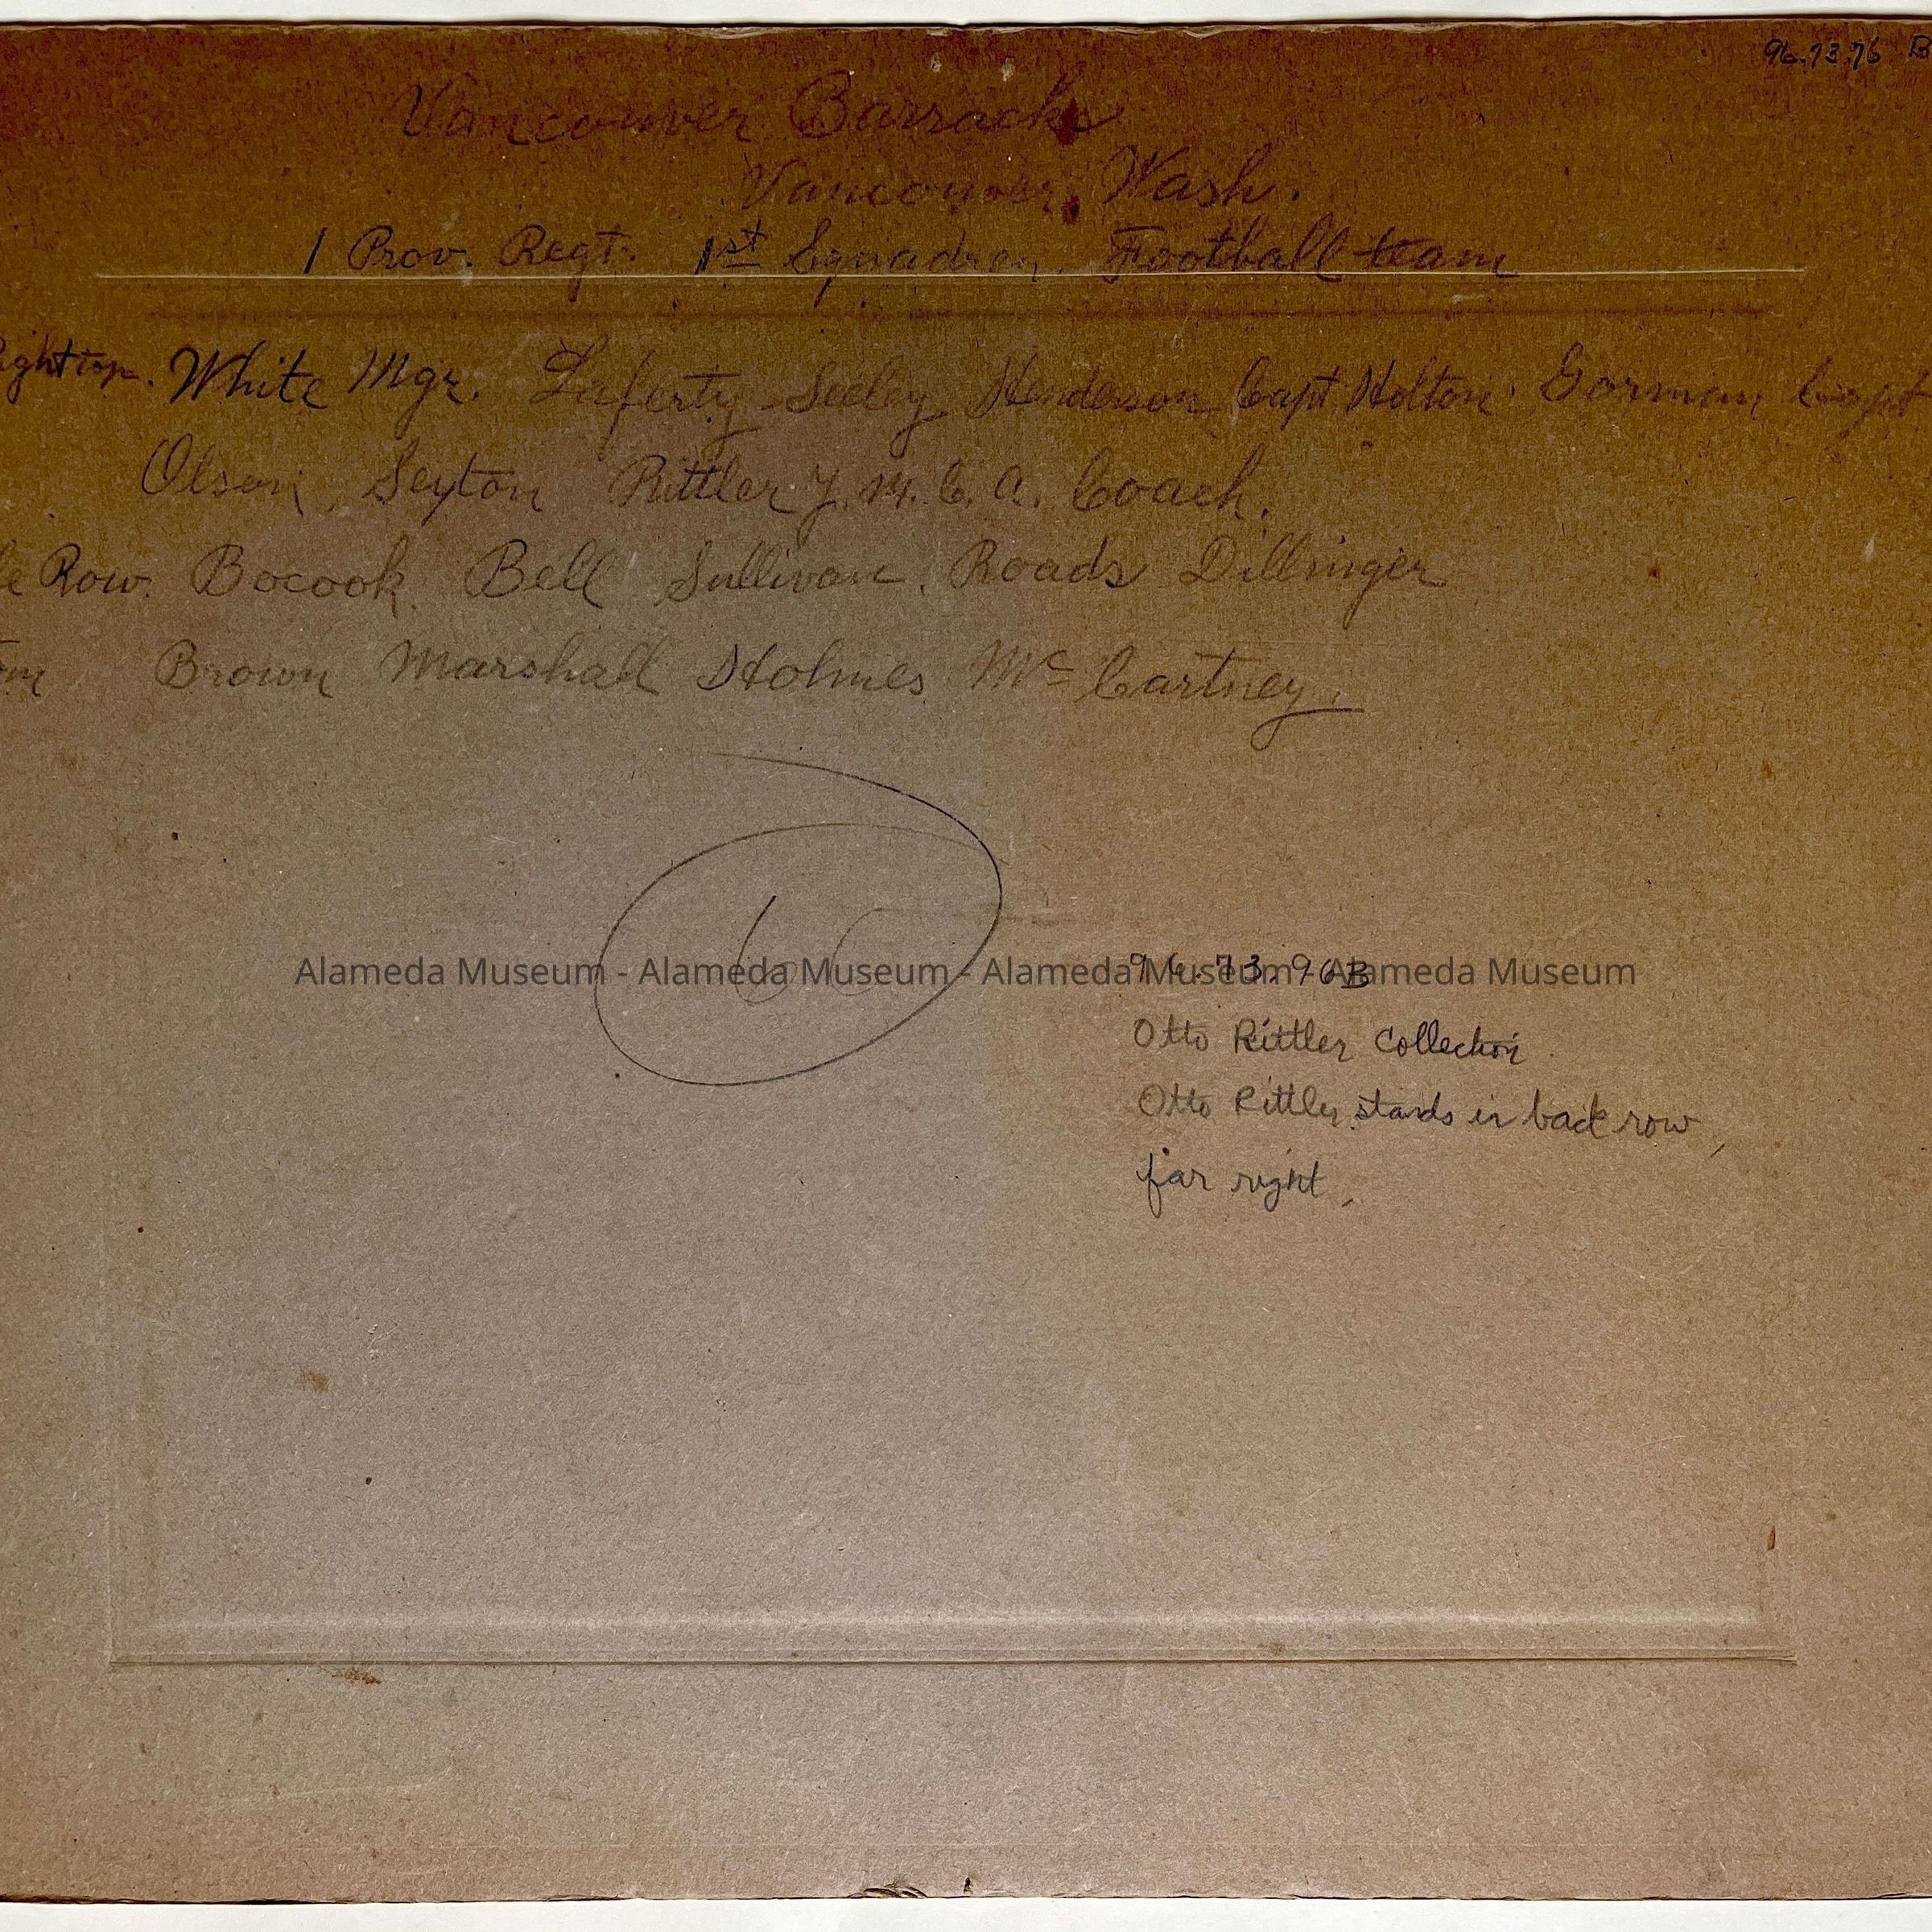 96.73.76 B
Vancouver Barracks
Vancouver, Wash.
1 Prov. Regt. 1st Squadron. Football team
White Mgr. Laferty Seeley Henderson Capt Holton. Gorman Capt
Olson, Sexton Rittler Y.M.C.A. Coach.
Row. Bocook. Bell Sullivan. Roads Dillinger
Brown Marshall Holmes McCartney.
Alameda Museum - Alameda Museum - Alameda Museum - Alameda Museum
96.73.96B
Otto Rittler Collection
Otto Rittler stands in back row,
far right.